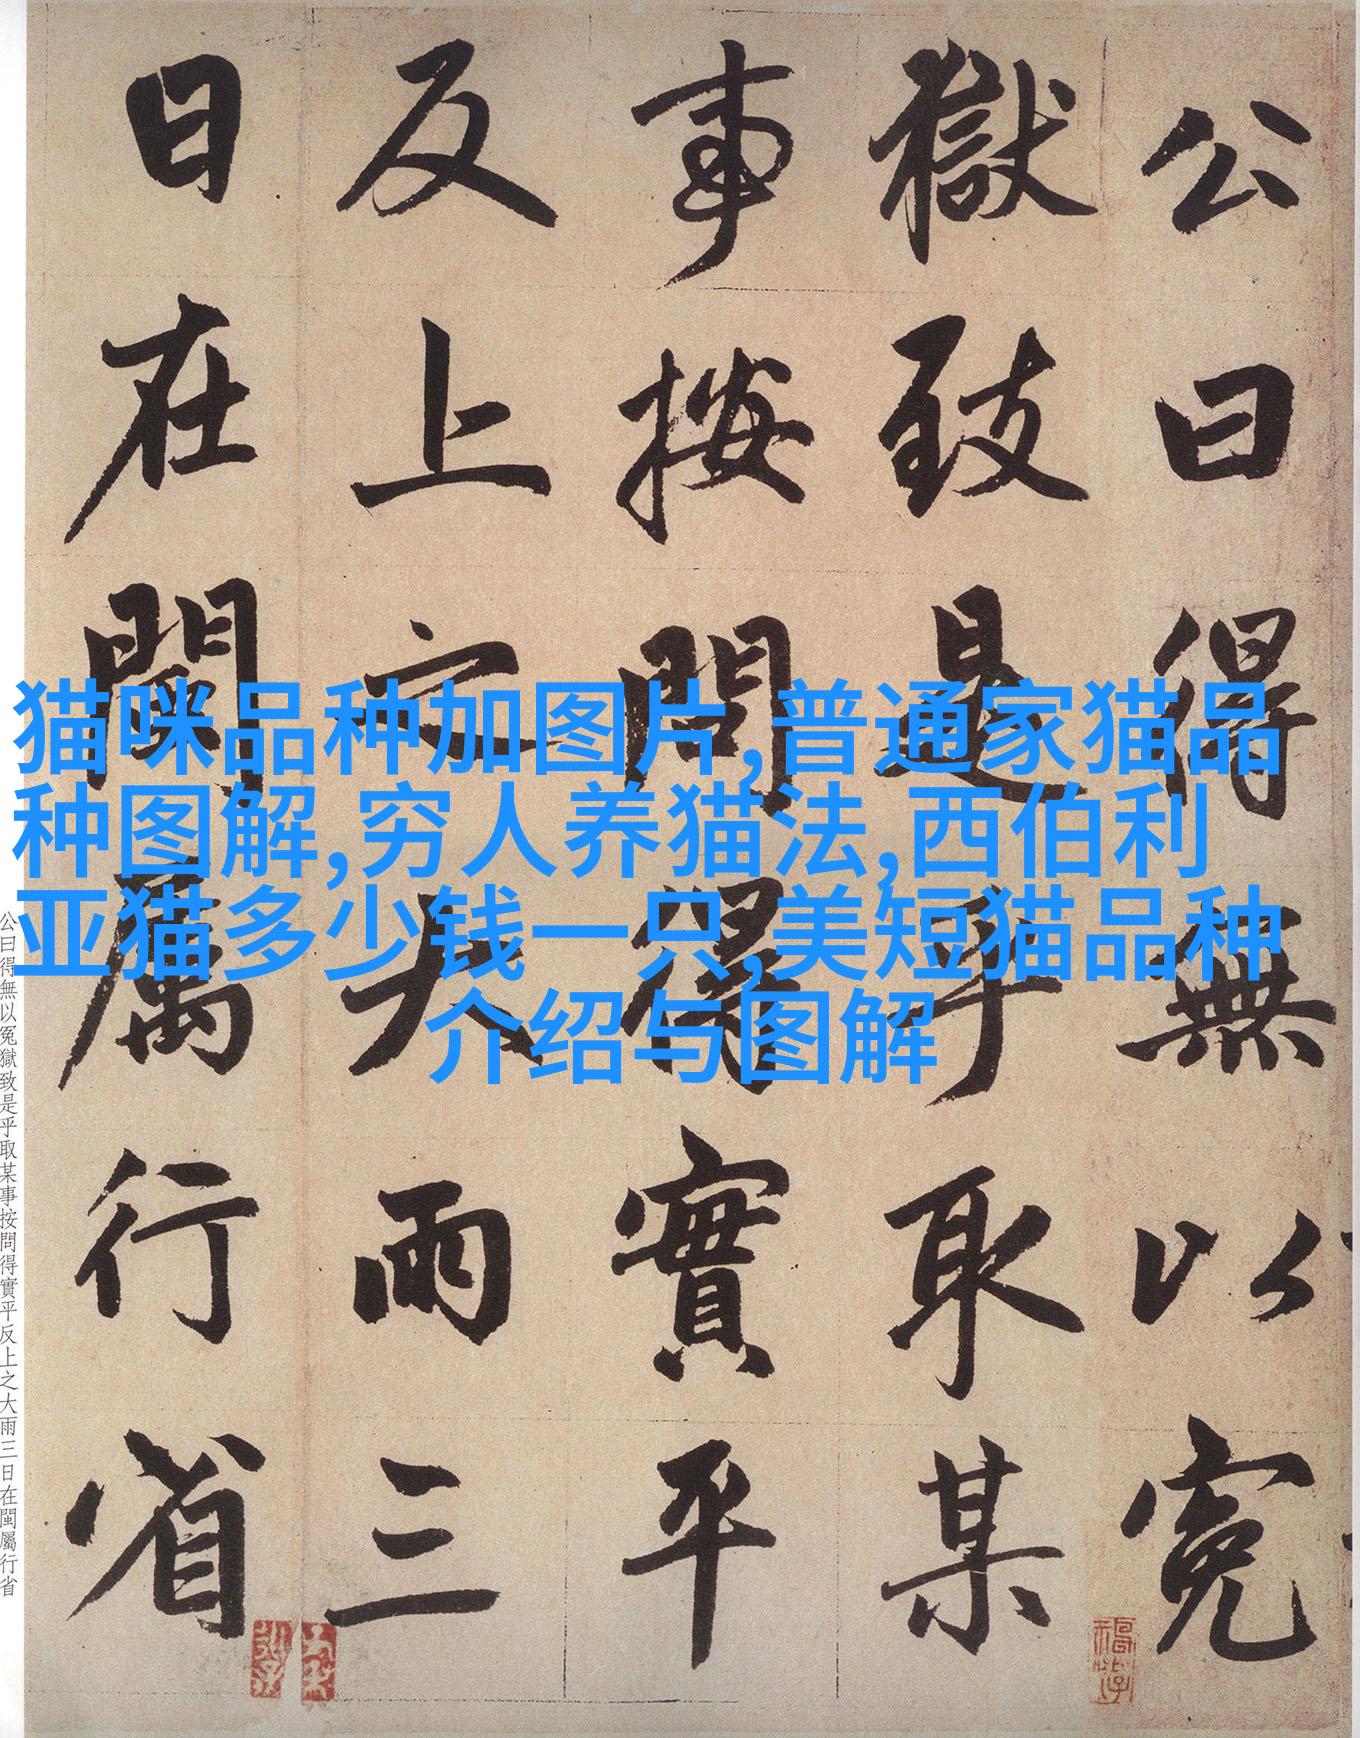 公曰得無以冤
獄致是乎取某
事按問得實平
反上之大雨三
日在閩屬行省
猫咪品种加图片,普通家猫品
种图解,穷人养猫法,西伯利
亚猫多少钱一只,美短猫品种
介绍与图解
公曰得無以冤獄致是乎取某事按問得實平反上之大雨三日在閩屬行省